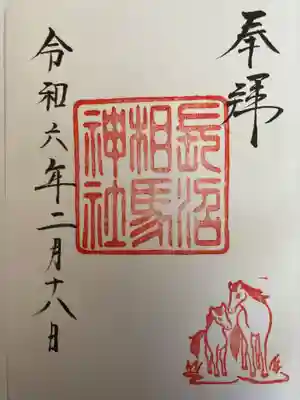 奉拜
長沼
相馬
神社
令和六年二月十八日